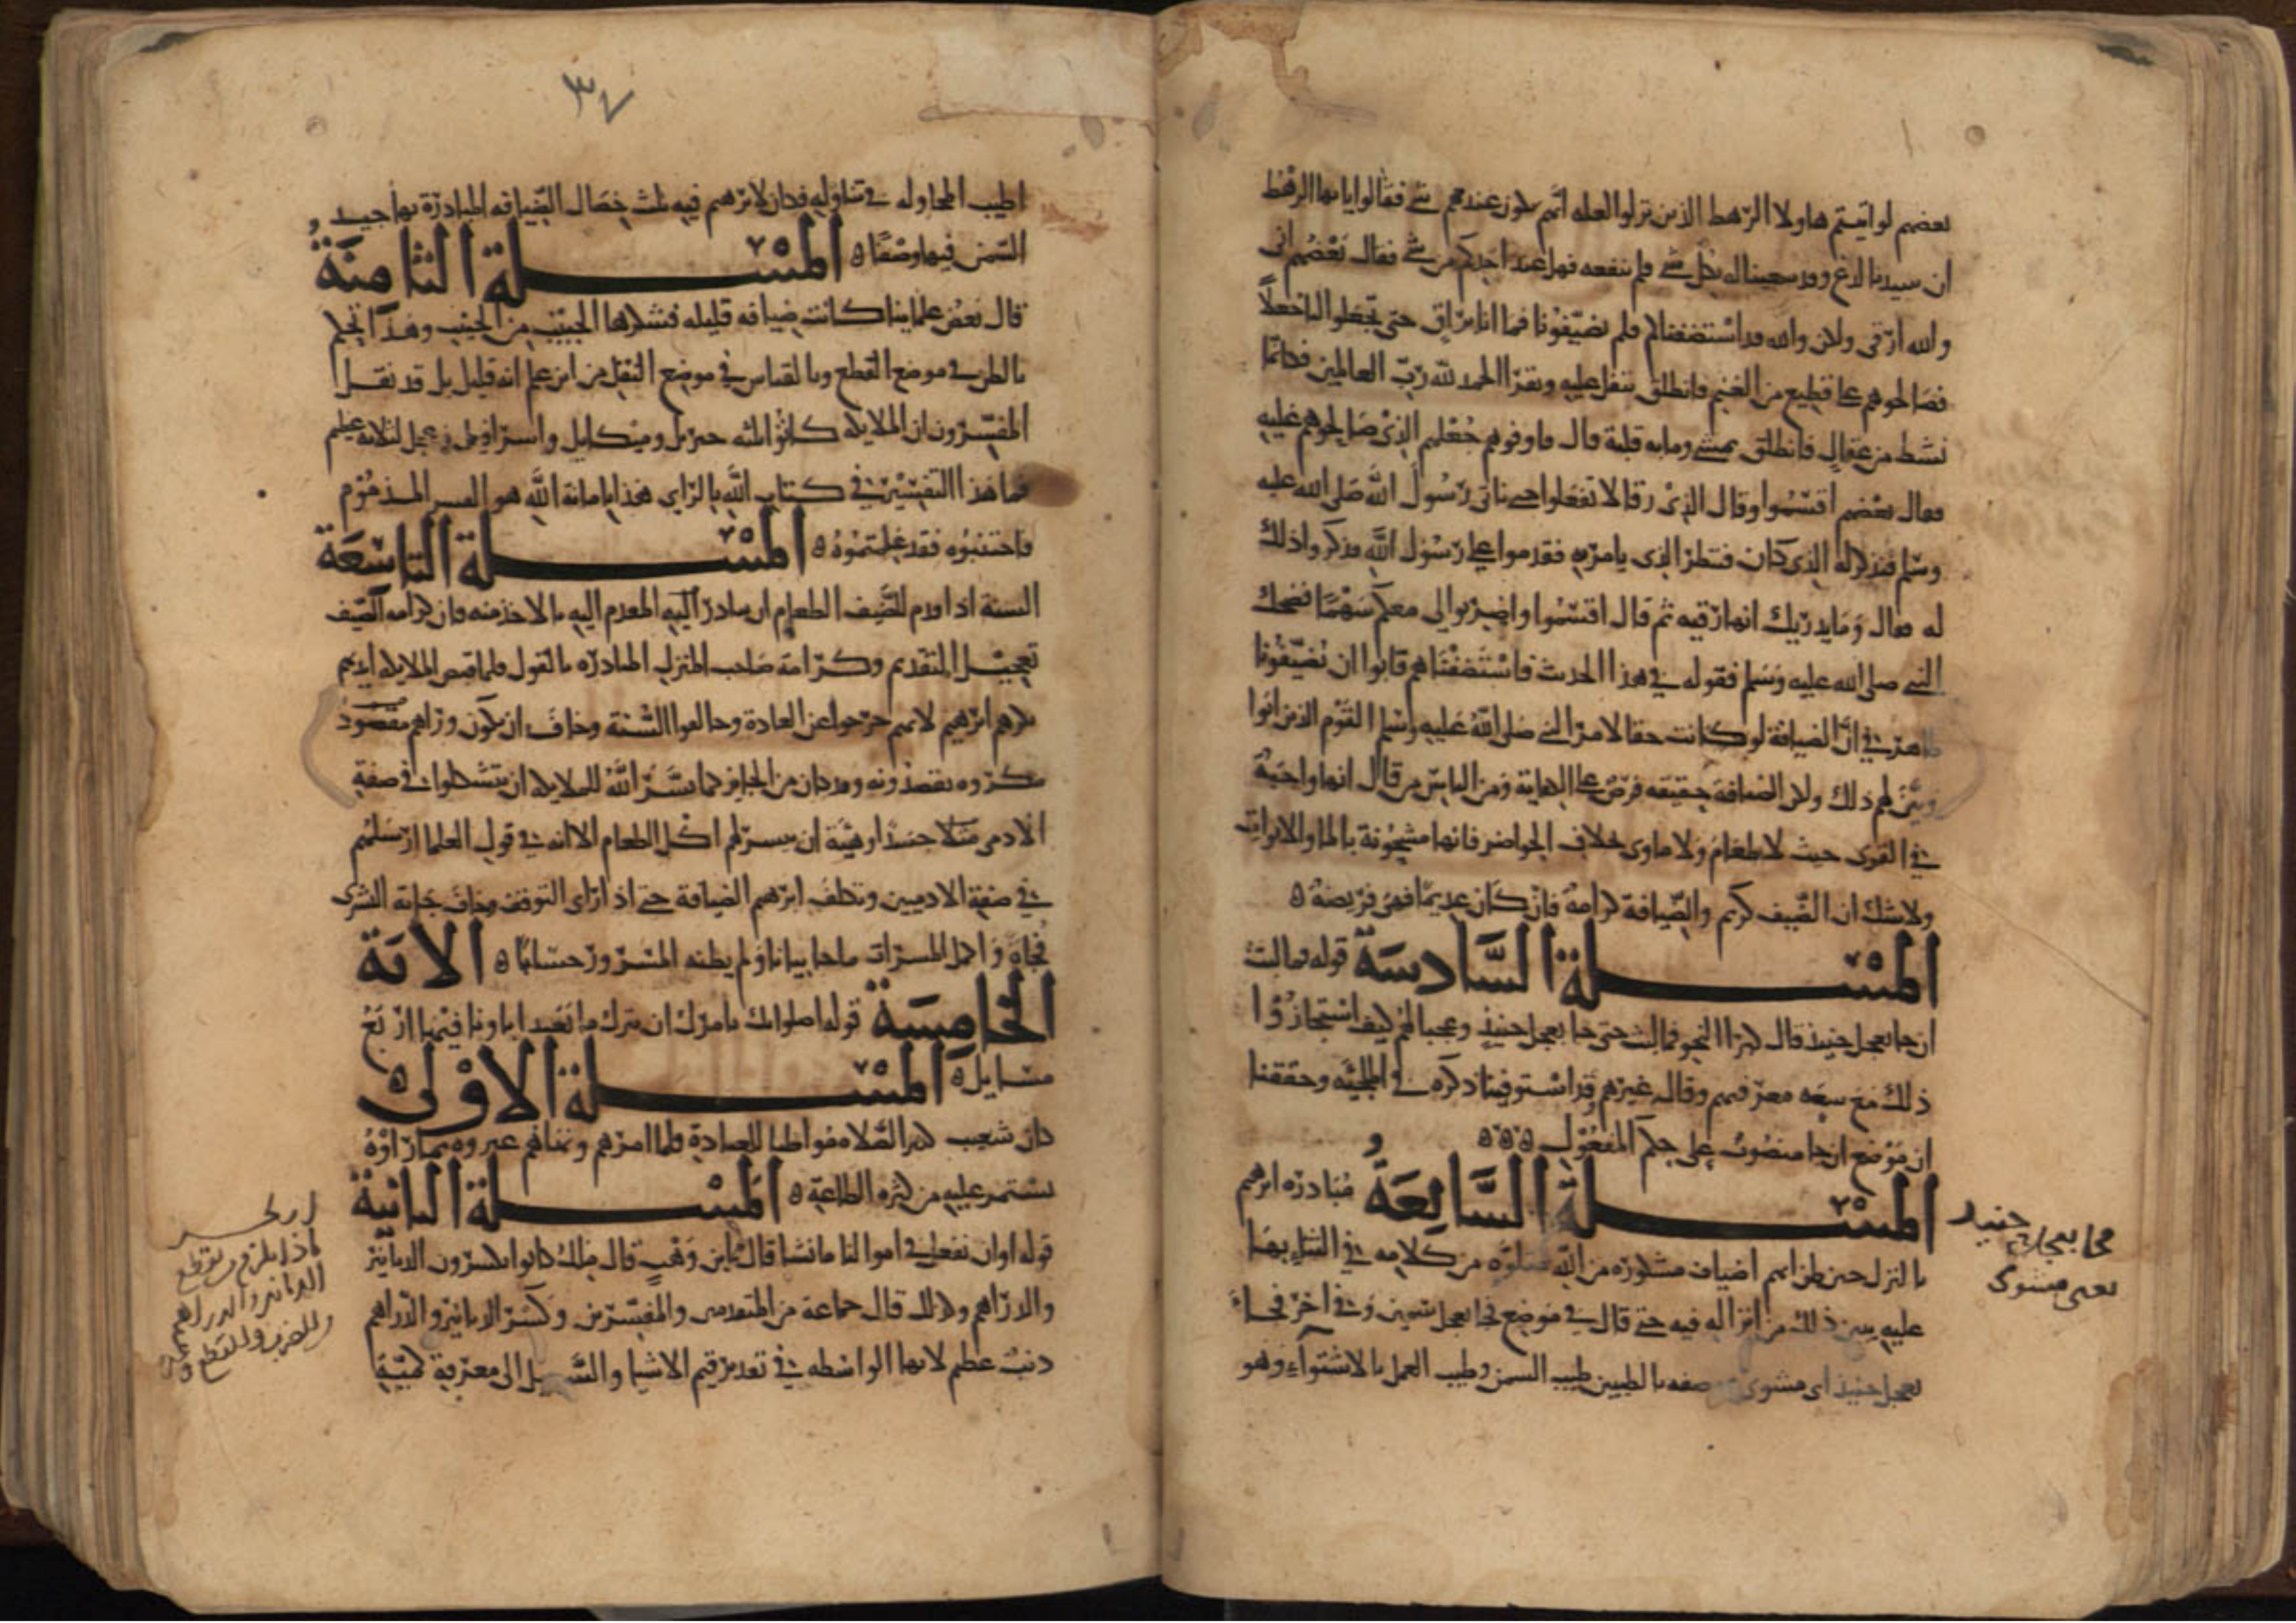 بعضهم لو اتيتم هاولا الرهط الذين نزلوا لعله انهم يكون عندهم شي فقالوا يا ايها الرهط
ان سيدنا لدغ وقد سعينا له بكل شي فلم ينفعه فهل عند احدكم من شي فقال بعضهم اني
والله ارقى ولكن والله قد استضفناكم فلم تضيفونا فما انا براق حتى تجعلوا لنا جعلا
فصالحوهم على قطيع من الغنم فانطلق يتفل عليه ويقرا الحمد لله رب العالمين فكانما
نشط من عقال فانطلق يمشي وما به قلبة قال فاوفوهم جعلهم الذي صالحوهم عليه
فقال بعضهم اقتسموا وقال الذي رقا لا تفعلوا حتى ناتي رسول الله صلى الله عليه
وسلم فنذكر له الذي كان فننظر الذي يامر به فقدموا على رسول الله فذكروا ذلك
له فقال وما يدريك انها رقيه ثم قال اقتسموا واضربوا لي معكم سهما فضحك
النبي صلى الله عليه وسلم فقوله في هذا الحديث فاستضفناهم فابوا ان يضيفونا
ظاهر في ان الضيافة لو كانت حقا لامر النبي صلى الله عليه وسلم القوم الذين ابوا
وبين لهم ذلك ولكن الضيافة حقيقه فرض على الكفاية ومن الناس من قال انها واجبة
في القرى حيث لا طعام ولا ماوى خلاف الحواضر فانها مشحونة بالماوا والاقوات
ولا شك ان الضيف كريم والضيافة كرامة فان كان عديما فهي فريضة ٥
المسلة السادسة قوله فما لبث
ان جا بعجل حنيذ قال كبرا النحو فما لبث حتى جا بعجل حنيذ وعجبا لهم كيف استجازوا
ذلك مع سعه معرفتهم وقال غيرهم قد استوفينا ذكره في الملجئه وحققنا
ان موضع ان جا منصوب على حكم المفعول ٥ ٥ ٥
المسلة السابعة مبادره ابرهيم
بالنزل حين ظن انهم اضياف مشكوره من الله متلوه من كلامه في الثنا بها
عليه بين ذلك من انزاله فيه حتى قال في موضع فجا بعجل سمين وفي اخر فجا
بعجل حنيذ اى مشوى ووصفه بالطيبين طيب السمن وطيب العمل بالاشتواء وهو
فجا بعجل حنيد
يعنى مشوى
٣٧
اطيب المحاوله في تناوله فكان لابرهيم فيه ثلث خصال الضيافه المبادرة بها جيد و
السمن فيها وصفا ٥ المسلة الثامنة
قال بعض علماينا كانت ضيافه قليله فشكرها الحبيب من الحبيب وهذا تحكم
بالظن في موضع القطع وبالقياس في موضع النقل من اين علم انه قليل بل قد نقل
المفسرون ان الملايكه كانوا ثلثه جبريل وميكايل واسرافيل وعجل لثلاثه عظيم
فما هذا التفسير في كتاب الله بالراي هذا بامانة الله هو التفسير المذموم
فاجتنبوه فقد علمتموه ٥ المسلة التاسعة
السنة اذا قدم للضيف الطعام ان يبادر اليه المقدم اليه بالاخذ منه فان كرامه الضيف
تعجيل التقديم وكرامة صاحب المنزل المبادره بالقبول فلما قبض الملايكه ايديهم
نكرهم ابرهيم لانهم خرجوا عن العادة وخالفوا السنة وخاف ان يكون وراهم مقصود
مكروه يقصدونه وقد كان من الجايز كما يسر الله للملايكه ان يتشكلوا في صفة
الادمي جسدا وهيئة ان ييسر لهم اكل الطعام الا انه في قول العلما ارسلهم
في صفة الادميين وتكلف ابرهيم الضيافة حتى اذا راى التوقف وخاف جاته البشرى
فجاة واكمل المسرات ما جا بيانا ولم يظنه المسرور حسابا ٥ الاية
الخامسة قوله اصلواتك تامرك ان نترك ما يعبد اباونا فيها اربع
مسايل ٥ المسلة الاولى ٥
كان شعيب كثير الصلاة مواظبا للعبادة فلما امرهم ونهاهم عيروه بما راوه
يستمر عليه من كثره الطاعة ٥ المسلة الثانية
قوله او ان نفعل في اموالنا ما نشا قال ابن وهب قال ملك كانوا يكسرون الدنانير
والدراهم وكذلك قال جماعة من المتقدمين والمفسرين وكسر الدنانير والدراهم
ذنب عظيم لانها الواسطه في تقدير قيم الاشيا والسبيل الى معرفة كمية
الدنانير والدراهم